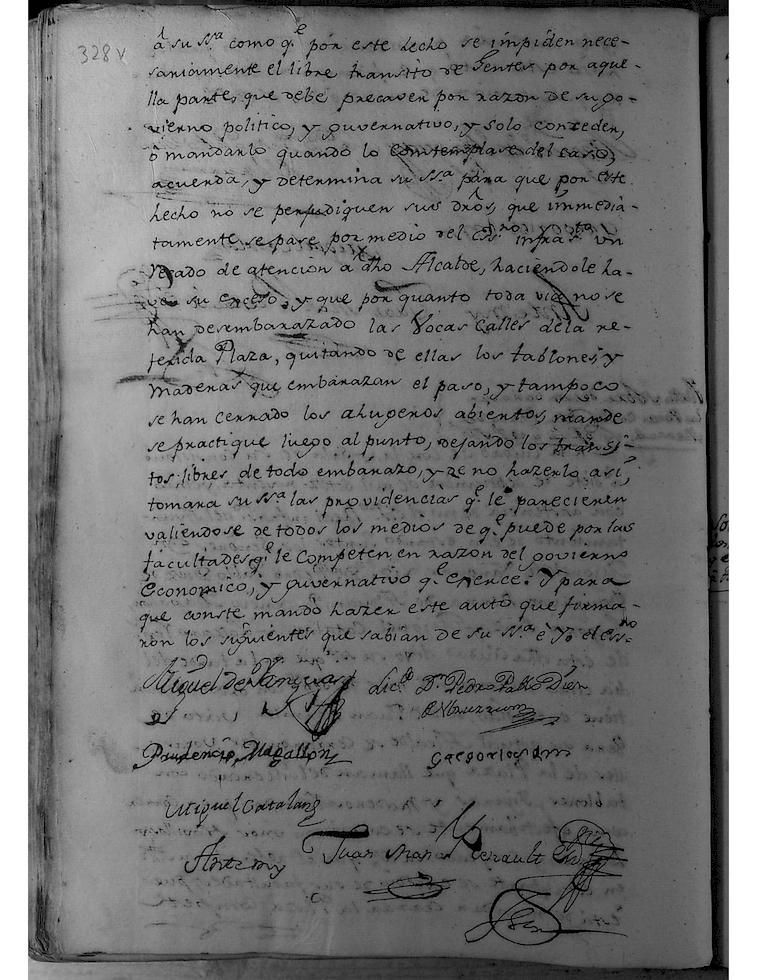 328 v
à su ssª como qᵉ por este hecho se impiden nece-
sariamente el libre transito de Gentes por aque-
lla parte, que debe precaver por razon de su go-
vierno politico, y guvernativo, y solo conceder,
ò mandarlo quando lo contemplase del caso;
acuerda, y determina su ssª para que por este
hecho no se perjudiquen sus dr̃os, que immedia-
tamente se pase por medio del infraᵗᵒ Un
Recado de atencion a dh̃o Alcalde, haciendole ha-
ver su exceso, y que por quanto toda via no se
han desembarazado las Vocas Calles de la re-
ferida Plaza, quitando de ellas los tablones, y
maderas que embarazan el paso, y tampoco
se han cerrado los ahugeros abiertos, mande
se practique luego al punto, dejando los transi-
tos libres de todo embarazo, y ze no hazerlo asi,
tomara su ssª las providencias qᵉ le parecieren
valiendose de todos los medios de qᵉ puede por las
facultades qᵉ le Competen en razon del govierno
Economico, y guvernativo qᵉ exerce. Y para
que conste mandò hazer este auto que firma-
ron los siguientes que sabian de su ssª è Yo el essⁿᵒ
Miguel de
Licᵈᵒ Dⁿ Pedro Pablo Diez
Prudencio Magallon
Gregorio
Miguel Catalan
Ante my
Juan